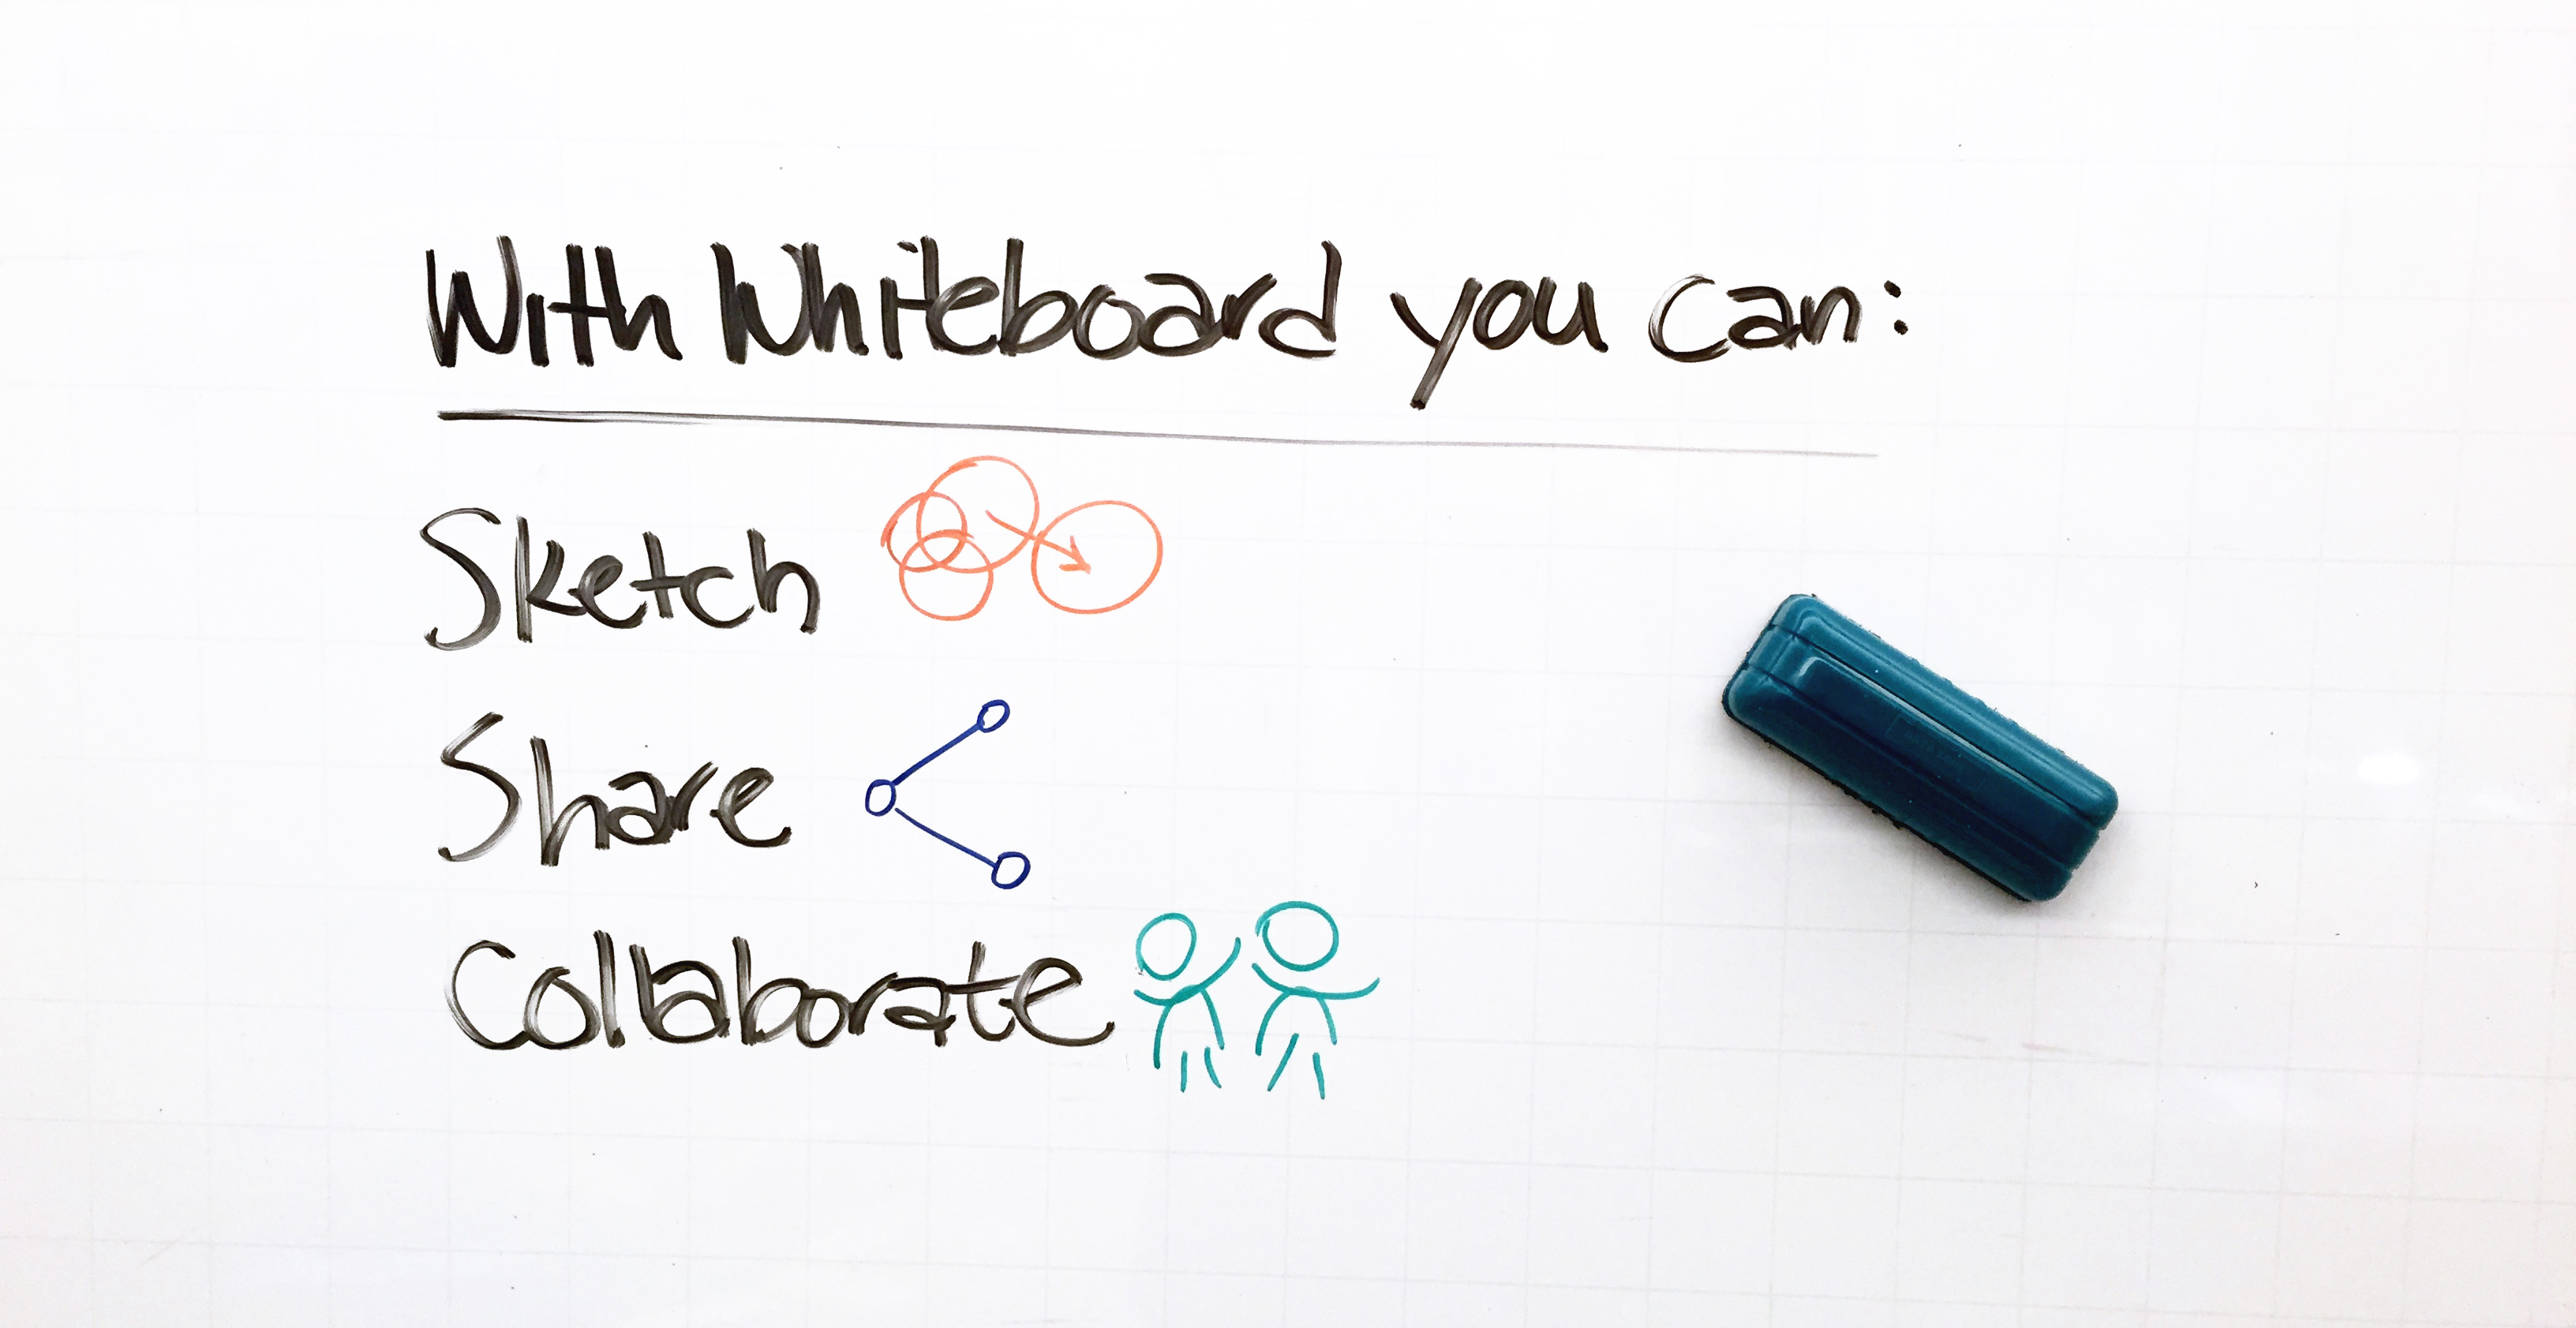 With Whiteboard you can:
Sketch
Share
Collaborate